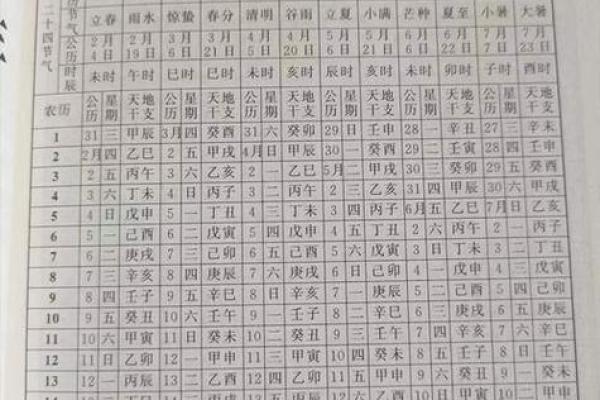 二十四节气
历
节气 立春 雨水 惊蛰 春分 清明 谷雨 立夏 小满 芒种 夏至 小暑 大暑
公历 2月4日 2月19日 3月6日 3月21日 4月5日 4月20日 5月6日 5月21日 6月6日 6月22日 7月7日 7月23日
时辰 未时 午时 巳时 巳时 未时 亥时 辰时 亥时 未时 卯时 子时 酉时
农历 公历 星期 天地干支 公历 星期 天地干支 公历 星期 天地干支 公历 星期 天地干支 公历 星期 天地干支 公历 星期 天地干支
1 31 三 甲辰 3月 四 癸酉 31 六 癸卯 29 日 壬申 28 一 辛丑 27 三 辛未
2 2月 四 乙巳 2 五 甲戌 4月 日 甲辰 30 一 癸酉 29 二 壬寅 28 四 壬申
3 2 五 丙午 3 六 乙亥 2 一 乙巳 5月 二 甲戌 30 三 癸卯 29 五 癸酉
4 3 六 丁未 4 日 丙子 3 二 丙午 2 三 乙亥 31 四 甲辰 30 六 甲戌
5 4 日 戊申 5 一 丁丑 4 三 丁未 3 四 丙子 6月 五 乙巳 7月 日 乙亥
6 5 一 己酉 6 二 戊寅 5 四 戊申 4 五 丁丑 2 六 丙午 2 一 丙子
7 6 二 庚戌 7 三 己卯 6 五 己酉 5 六 戊寅 3 日 丁未 3 二 丁丑
8 7 三 辛亥 8 四 庚辰 7 六 庚戌 6 日 己卯 4 一 戊申 4 三 戊寅
9 8 四 壬子 9 五 辛巳 8 日 辛亥 7 一 庚辰 5 二 己酉 5 四 己卯
10 9 五 癸丑 10 六 壬午 9 一 壬子 8 二 辛巳 6 三 庚戌 6 五 庚辰
11 10 六 甲寅 11 日 癸未 10 二 癸丑 9 三 壬午 7 四 辛亥 7 六 辛巳
12 11 日 乙卯 12 一 甲申 11 三 甲寅 10 四 癸未 8 五 壬子 8 日 壬午
13 12 一 丙辰 13 二 乙酉 12 四 乙卯 11 五 甲申 9 六 癸丑 9 一 癸未